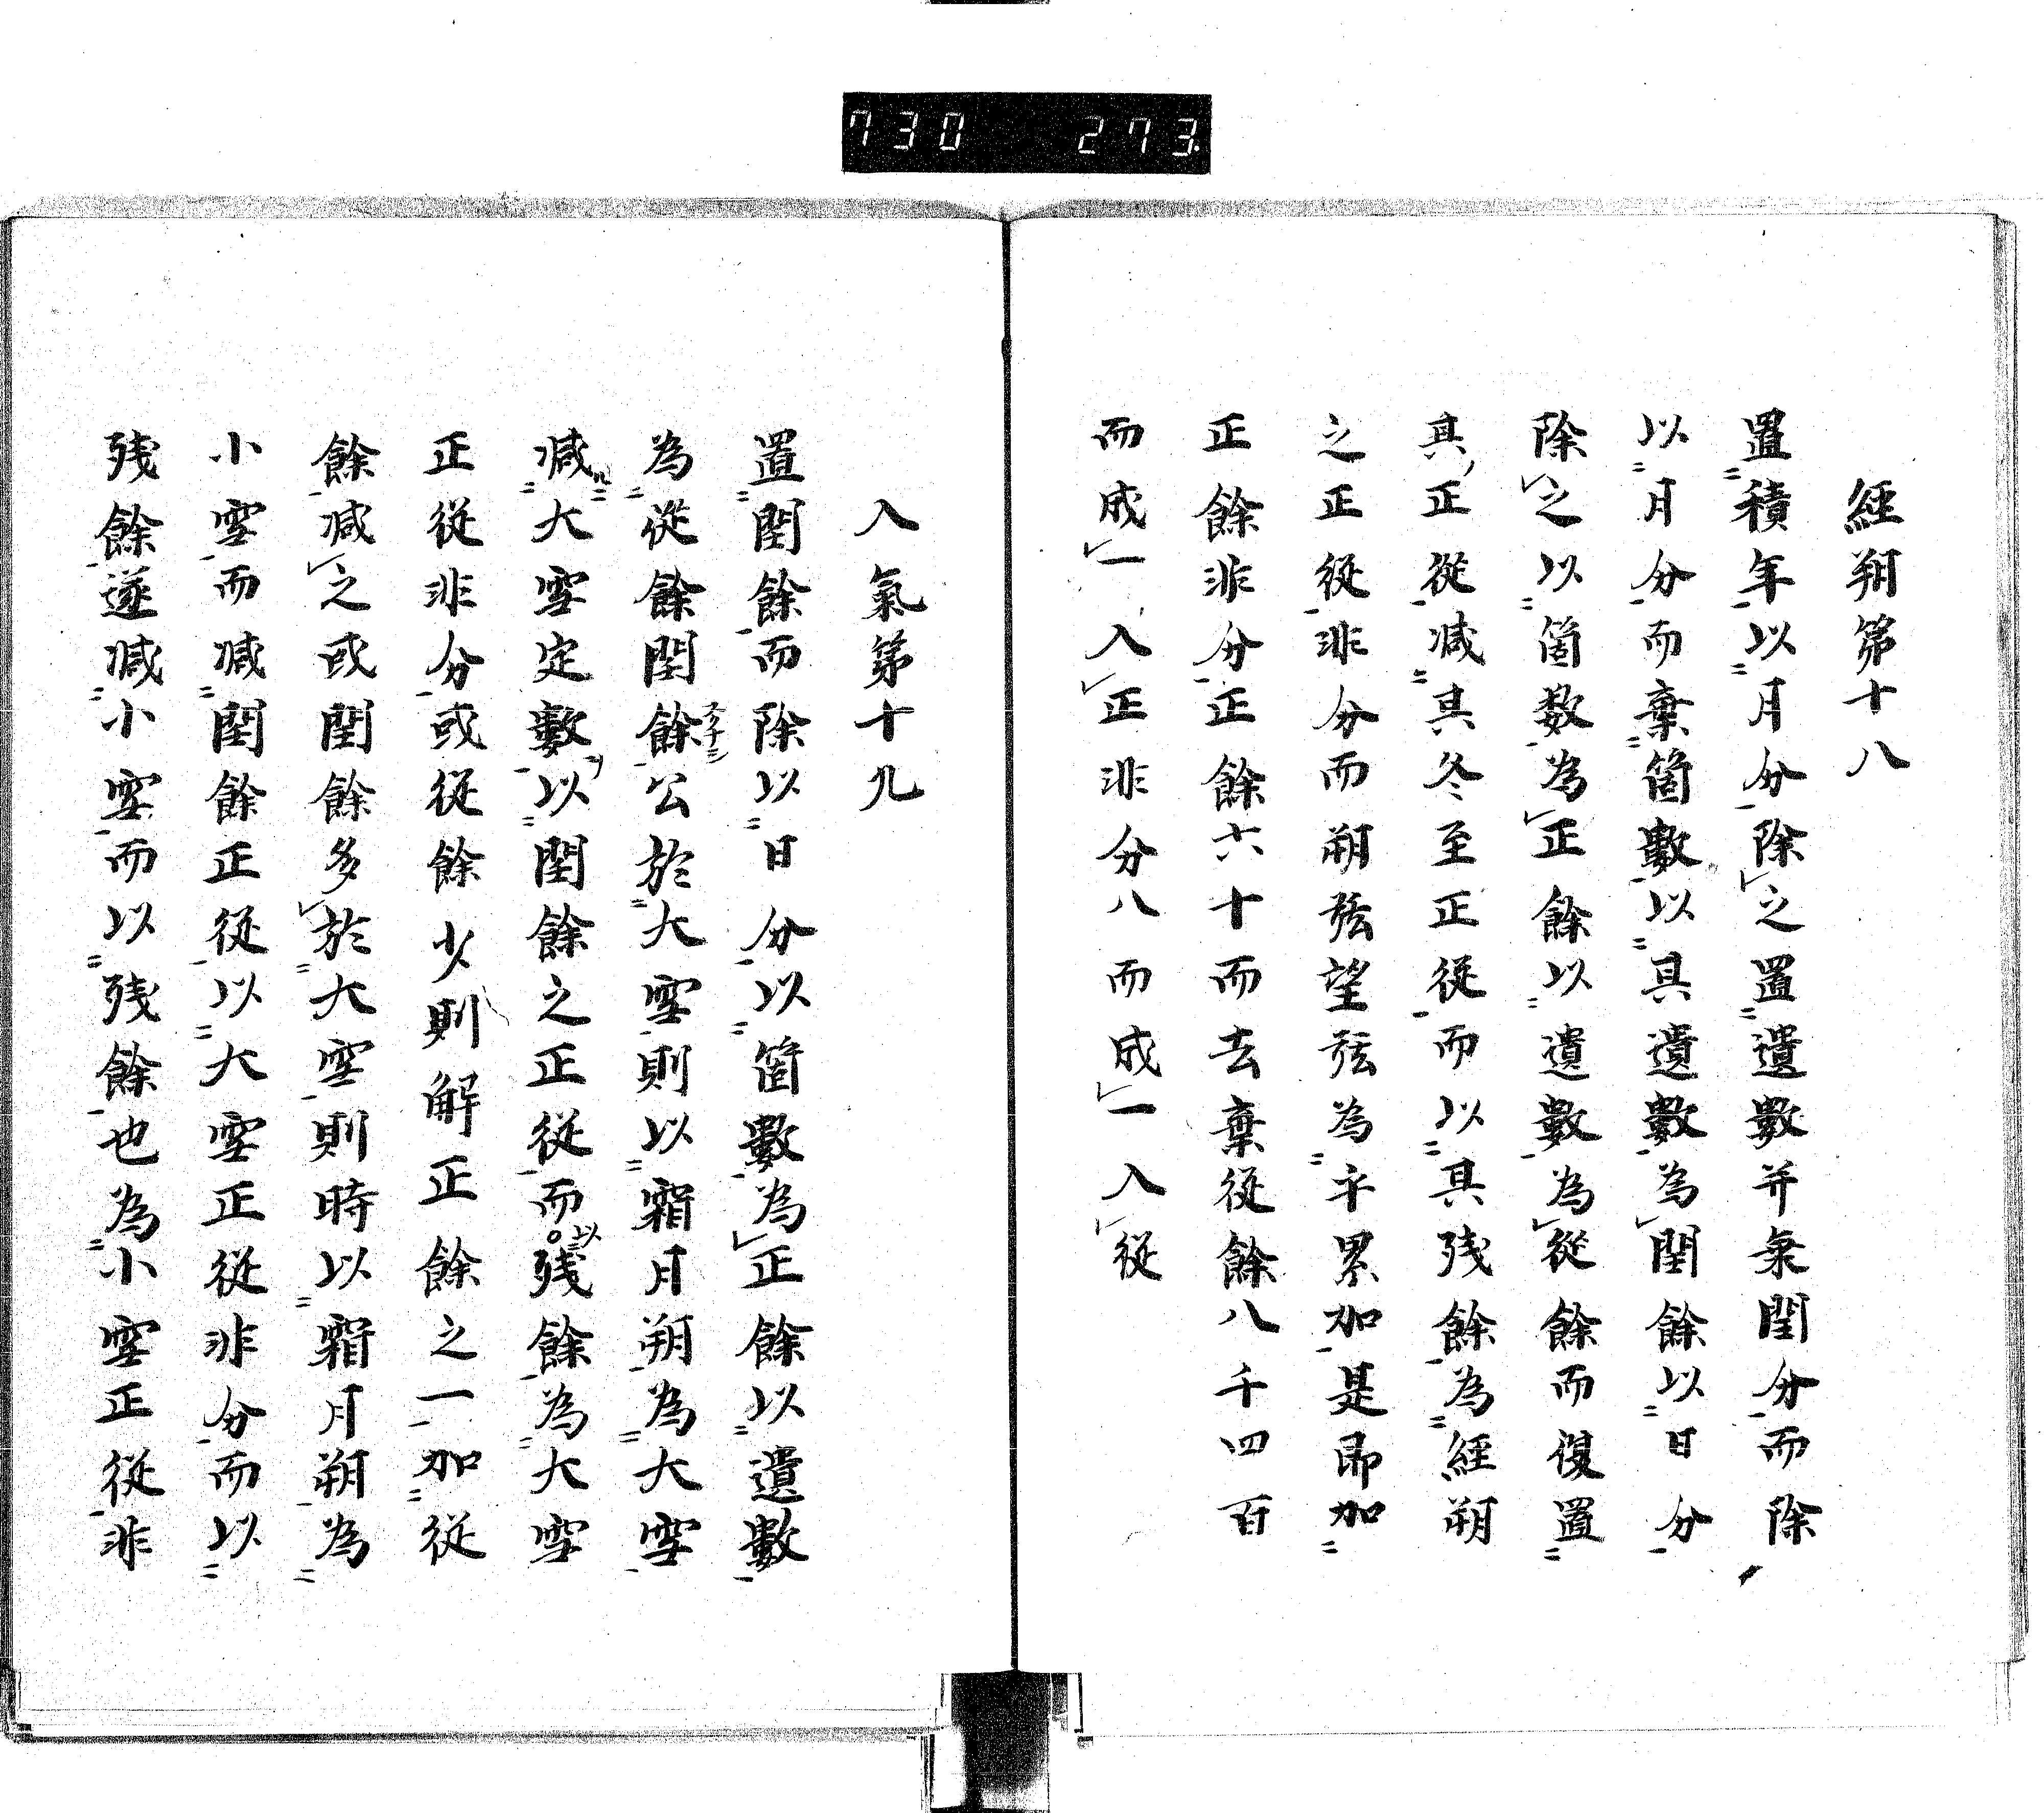 730 273
經朔第十八
置積年以月分除之置遺數并乗閏分而除
以月分而棄箇數以具遺數為閏餘以日分
除之以箇数為正餘以遺數為從餘而復置
其正從減其冬至正從而以其残餘為經朔
之正従非分而朔弦望弦為次累加是即加
正餘非分正餘六十而去棄従餘八千四百
而成一入正非分八而成一入従
入氣第十九
置閏餘而除以日分以箇數為正餘以遺數
為從餘閏餘公於大雪則以霜月朔為大雪
減大雪定數以閏餘之正從而以残餘為大雪
正從非分或從餘少則解正餘之一加從
餘減之或閏餘多於大雪則時以霜月朔為
小雪而減閏餘正從以大雪正從非分而以
残餘遂減小雪而以残餘也為小雪正從非